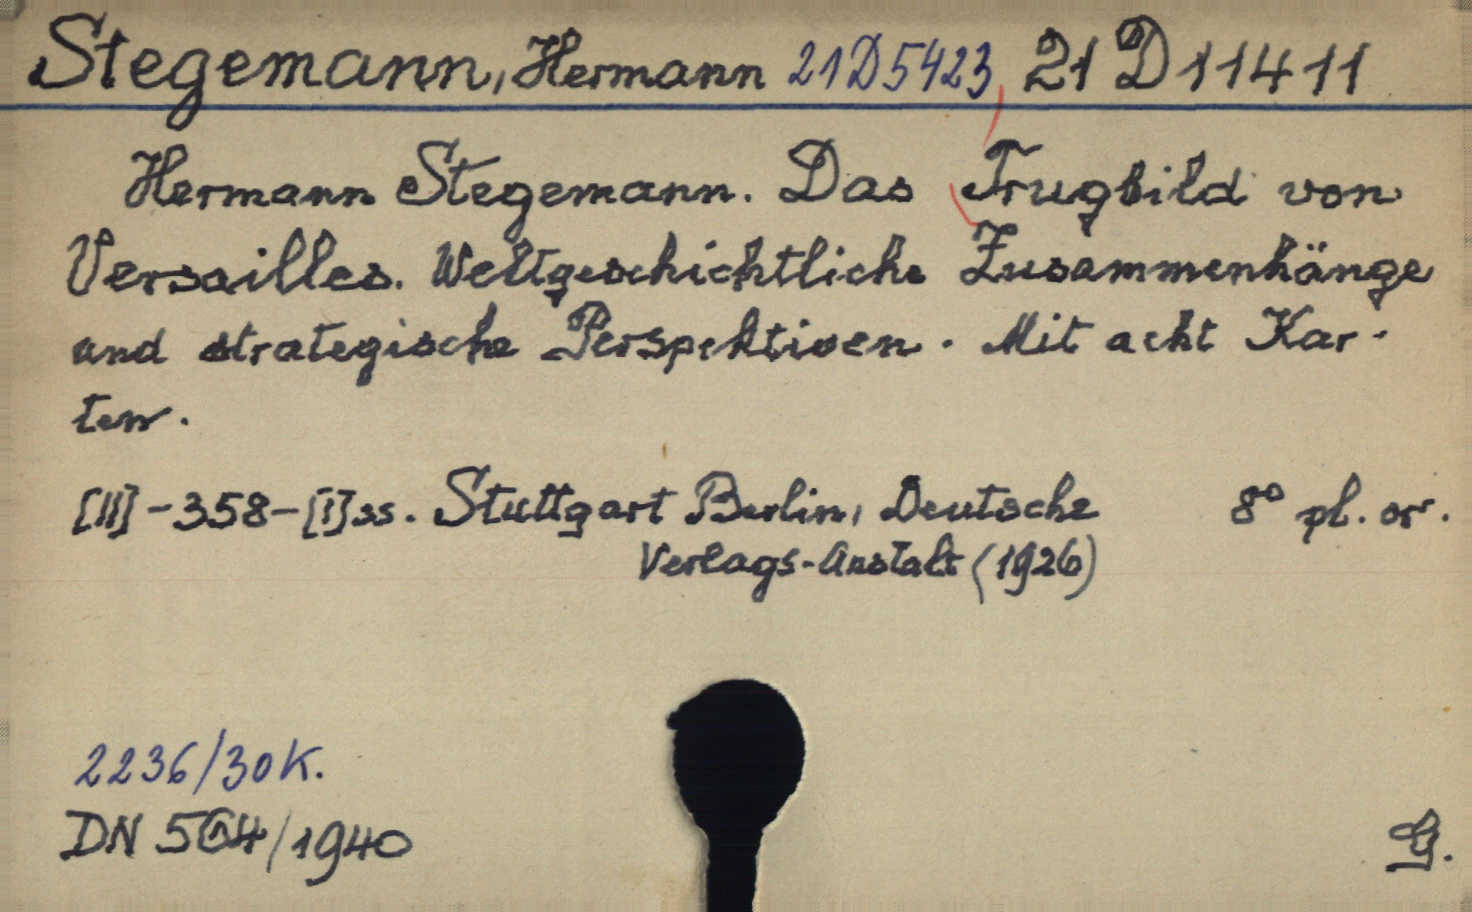 Stegemann, Hermann 21D5423, 21 D 11411
Hermann Stegemann. Das Trugbild von
Versailles. Weltgeschichtliche Zusammenhänge
und strategische Perspektiven. Mit acht Kar-
ten.
[II]-358-[I]ss. Stuttgart Berlin, Deutsche 8° pl. or.
Verlags-Anstalt (1926)
2236/30K.
DN 564/1940
G.